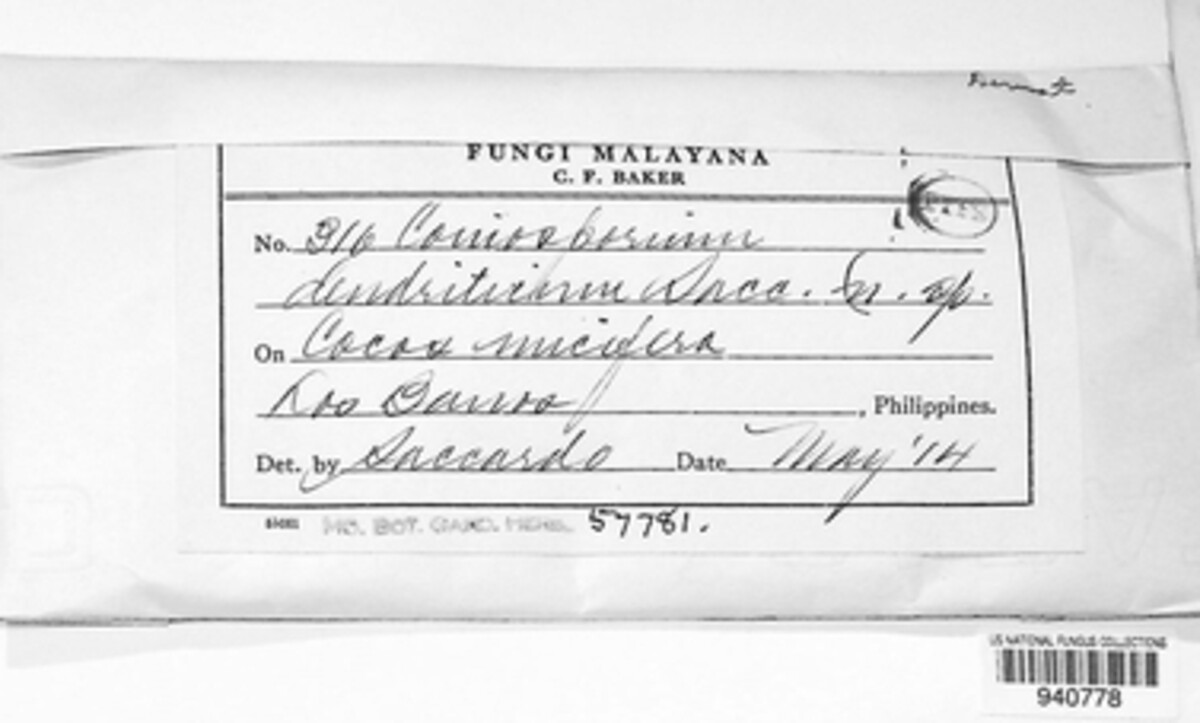 FUNGI MALAYANA
C. F. BAKER
No. 316 Coniosporium
dendriticum Sacc. (n. sp.
On Cocos nucifera
Los Banos, Philippines.
Det. by Saccardo Date May '14
MO. BOT. GARD. HERB. 57781.
US NATIONAL FUNGUS COLLECTIONS
940778